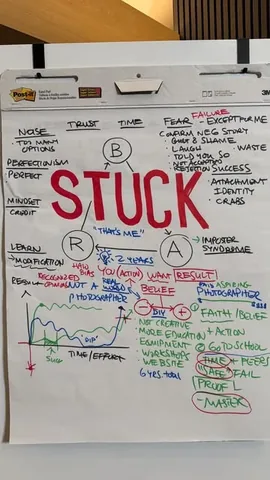 Post-it
NOISE
TRUST
TIME
FEAR
FAILURE
- EXCEPT FOR ME
• TOO MANY OPTIONS
CONFIRM NEG STORY
GUILT & SHAME
• LAUGH
WASTE
• TOLD YOU SO
• NOT ACCEPTED
• REJECTION
SUCCESS
PERFECTIONISM
PERFECT
B
• ATTACHMENT
IDENTITY
• CRABS
STUCK
MINDSET
CREDIT
"THAT'S ME"
R
A
→ IMPOSTER
SYNDROME
LEARN
MODIFICATION
2 YEARS
YOU (ACTION)
WANT RESULT
RECOGNIZED
NOT A
PHOTOGRAPHER
BELIEF
ASPIRING
PHOTOGRAPHER
$$$$
- DIY +
① FAITH / BELIEF
+ ACTION
NOT CREATIVE
MORE EDUCATION
EQUIPMENT
• WORKSHOPS
WEBSITE
6 yrs. total
② GO TO SCHOOL
TIME + PEERS
"SAFE" FAIL
PROVE
- MASTER
"DIP"
SUCK
TIME/EFFORT